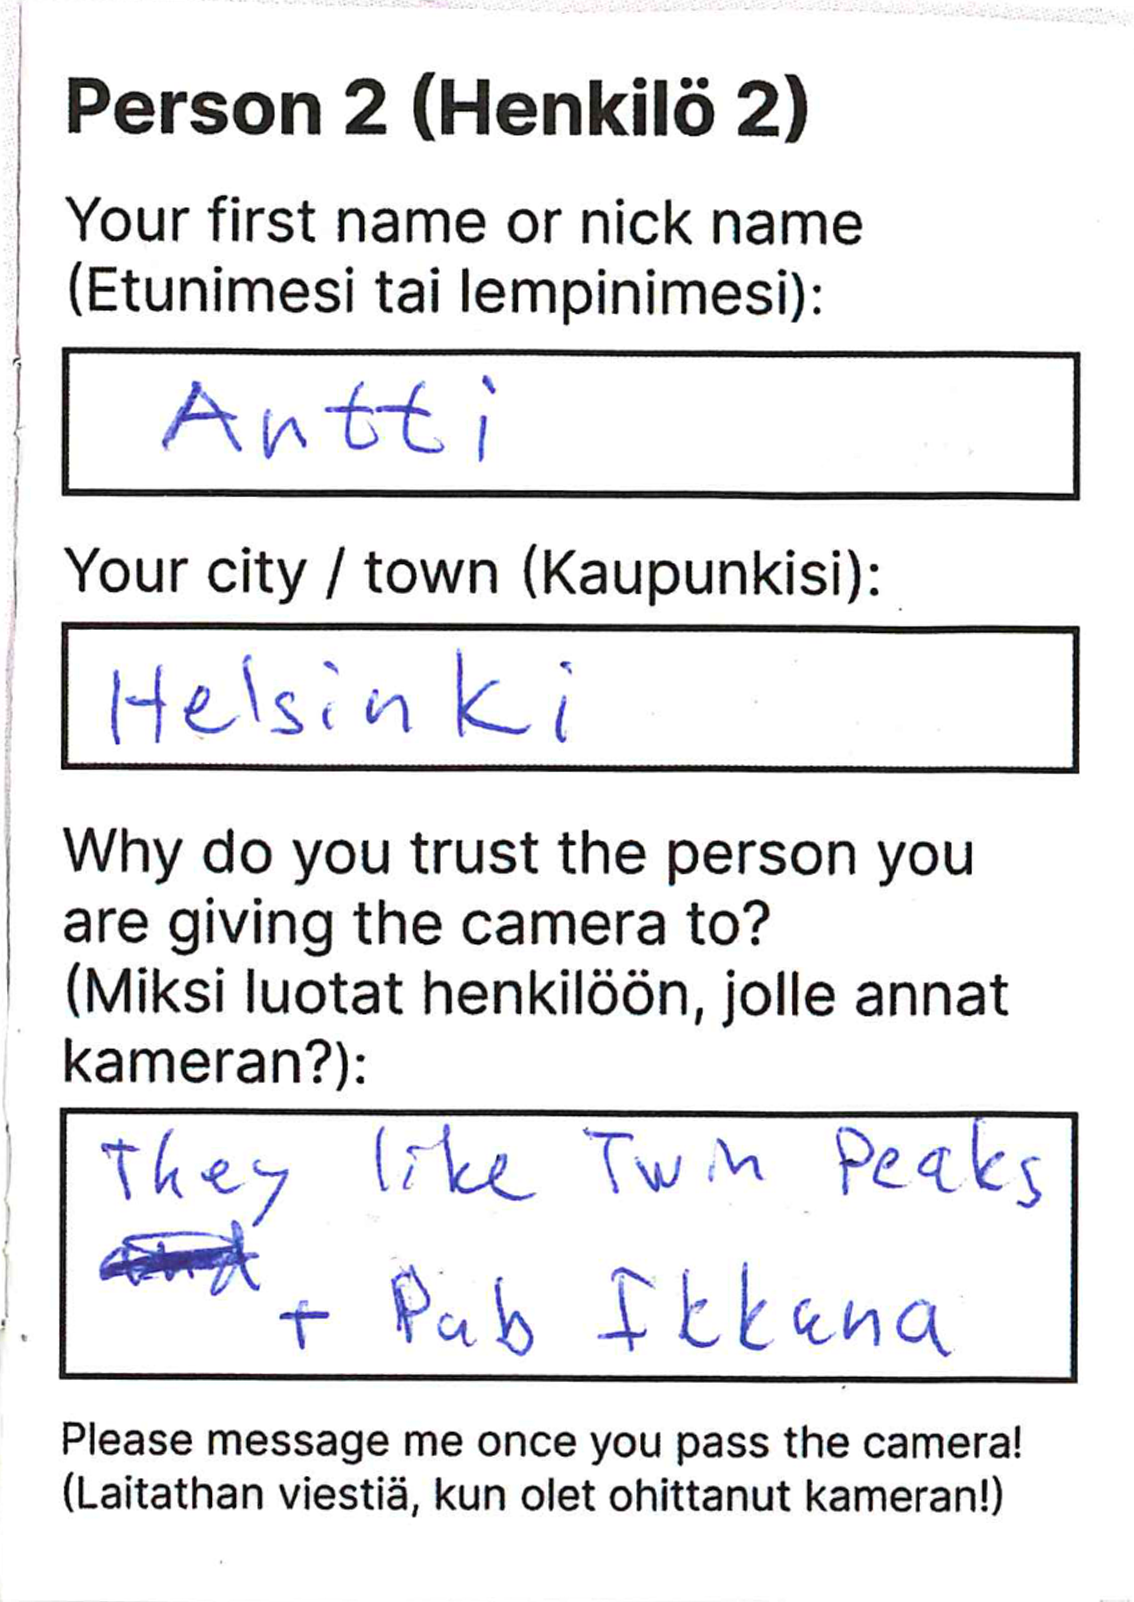 Person 2 (Henkilö 2)
Your first name or nick name
(Etunimesi tai lempinimesi):
Antti
Your city / town (Kaupunkisi):
Helsinki
Why do you trust the person you
are giving the camera to?
(Miksi luotat henkilöön, jolle annat
kameran?):
They like Twin Peaks
+ Pub Ikkuna
Please message me once you pass the camera!
(Laitathan viestiä, kun olet ohittanut kameran!)